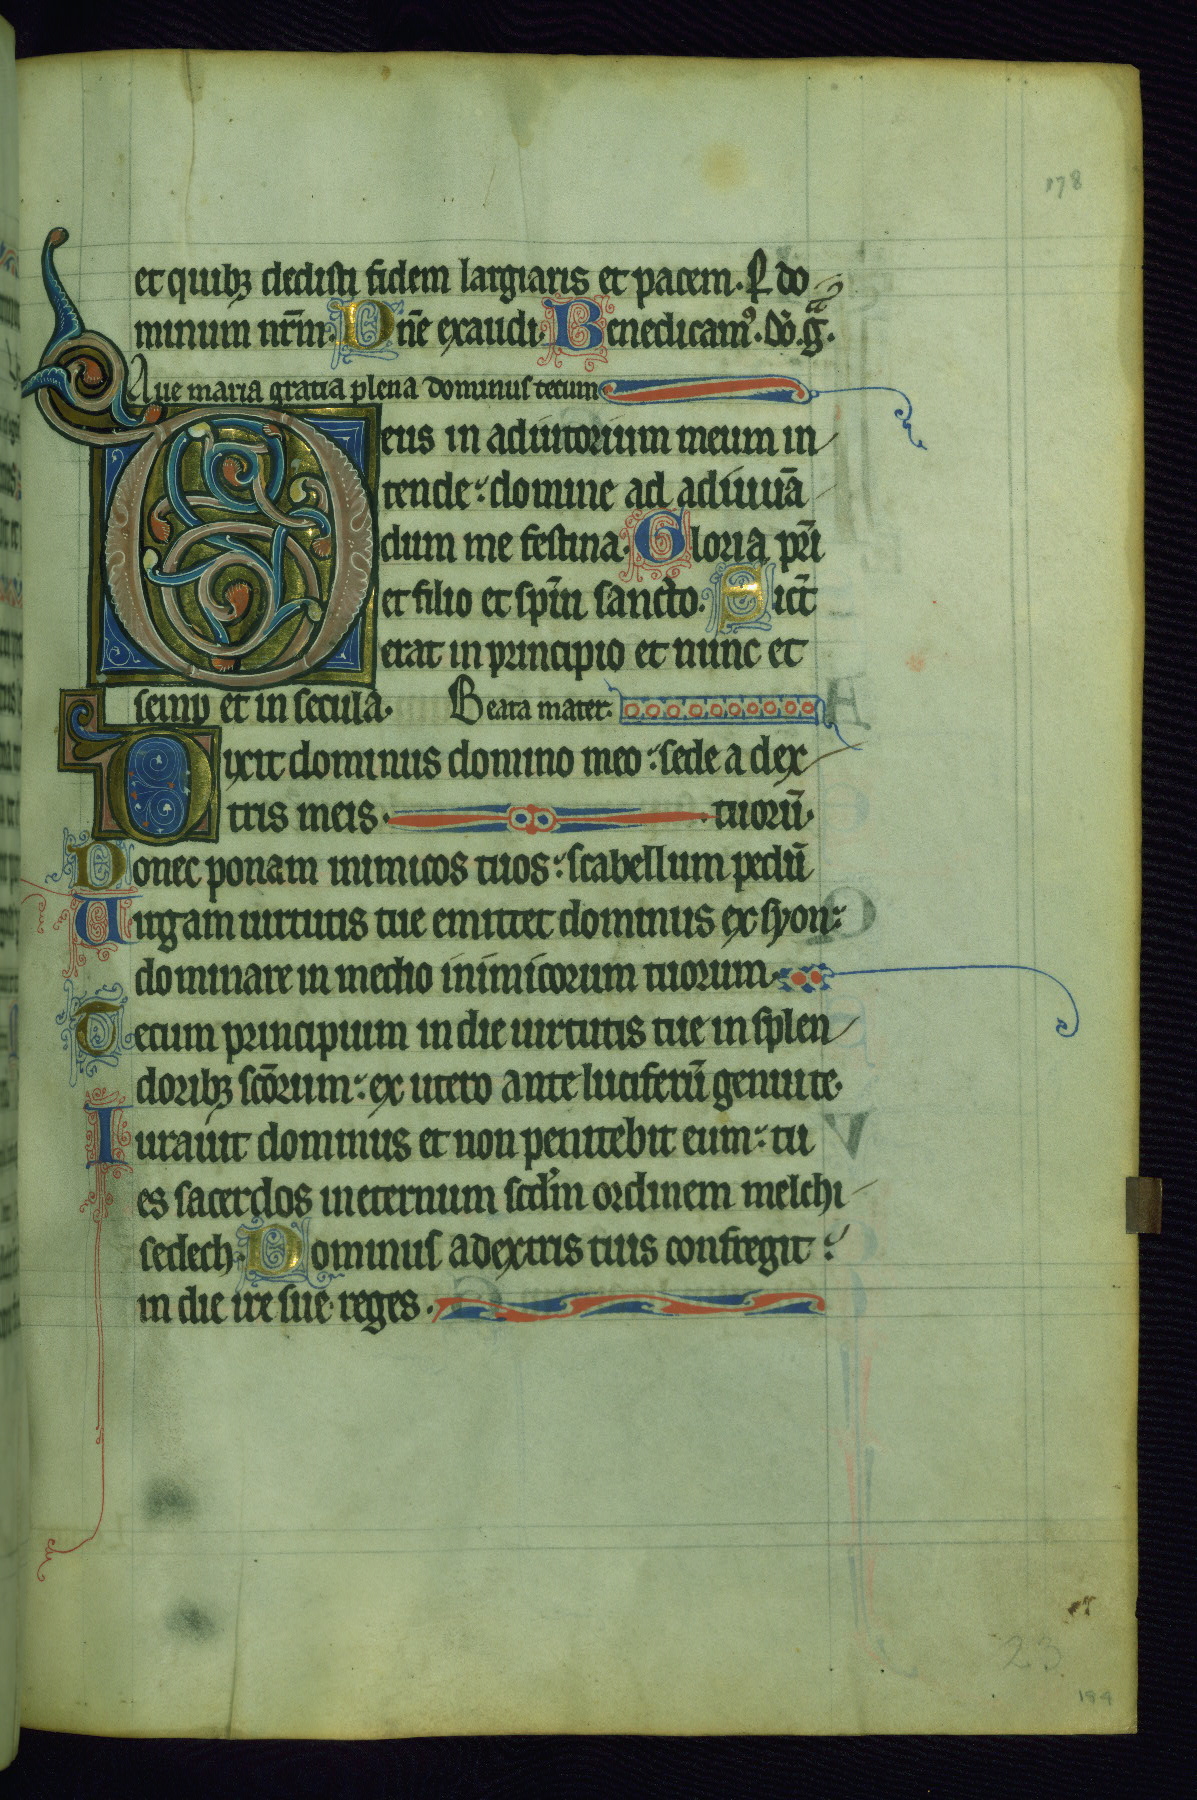 178
et quibꝫ dedisti fidem largiaris et pacem. P do
minum nr̄m. Dn̄e exaudi. Benedicamꝰ. dō. g̃.
Aue maria gratia plena dominus tecum
Deus in adiutorium meum in
tende: domine ad adiuuā
dum me festina. Gloria pr̄i
et filio et sp̄m sancto. Sict̄
erat in principio et nunc et
semp et in secula. Beata mater.
Dixit dominus domino meo: sede a dex
tris meis. tuorū.
Donec ponam inimicos tuos: scabellum pedū
Uirgam uirtutis tue emittet dominus ex syon:
dominare in medio inimicorum tuorum.
Tecum principium in die uirtutis tue in splen
doribꝫ scōrum: ex utero ante luciferū genui te.
Iurauit dominus et non penitebit eum: tu
es sacerdos in eternum scd̄m ordinem melchi
sedech. Dominus a dextris tuis confregit:
in die ire sue reges.
23
199